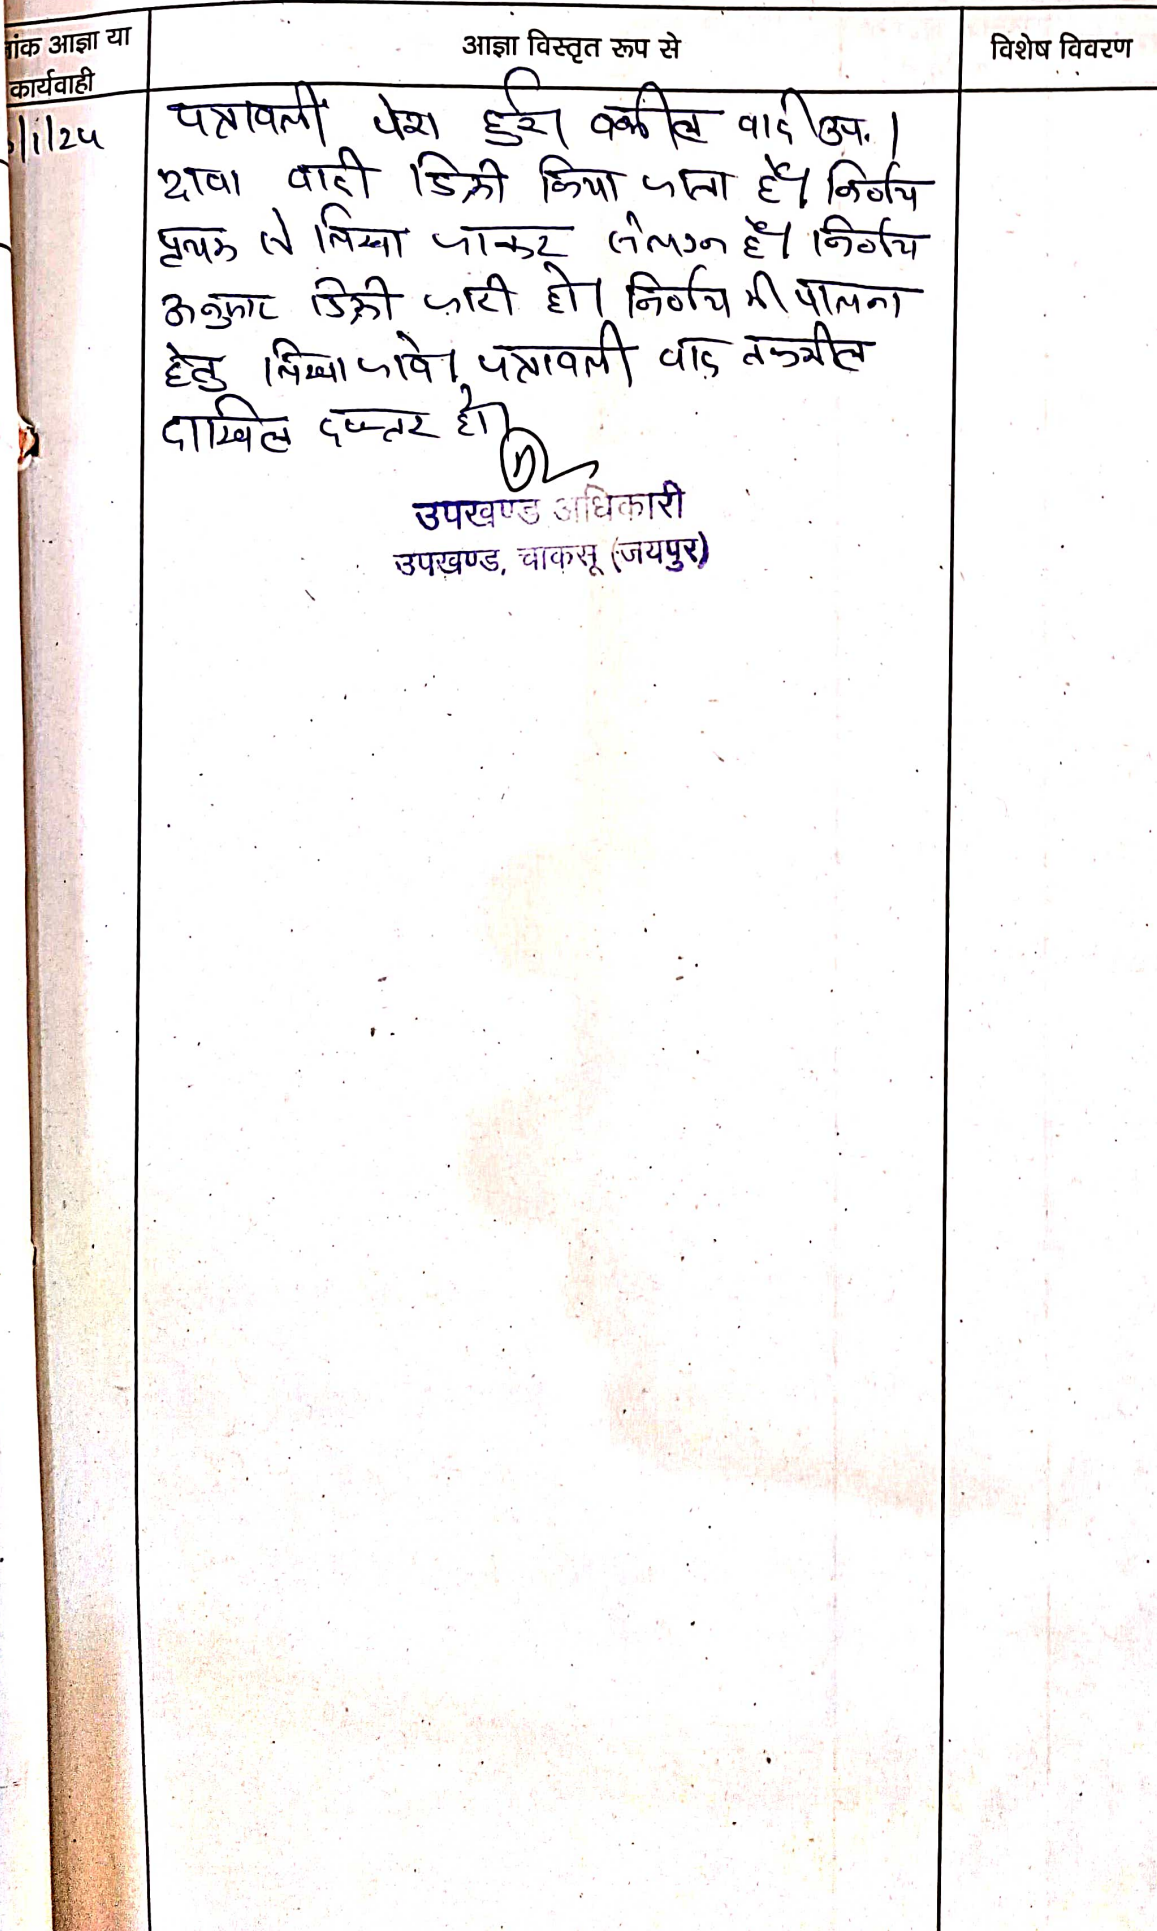 ांक आज्ञा या
कार्यवाही
आज्ञा विस्तृत रूप से
विशेष विवरण
/1/24
पत्रावली पेश हुई। वकील वादी उप.।
दावा वादी डिक्री किया जाता है। निर्णय
पृथक से लिखा जाकर संलग्न है। निर्णय
अनुसार डिक्री जारी हो। निर्णय की पालना
हेतु लिखा जावे। पत्रावली बाद तकमील
दाखिल दफ्तर हो।
उपखण्ड अधिकारी
उपखण्ड, चाकसू (जयपुर)